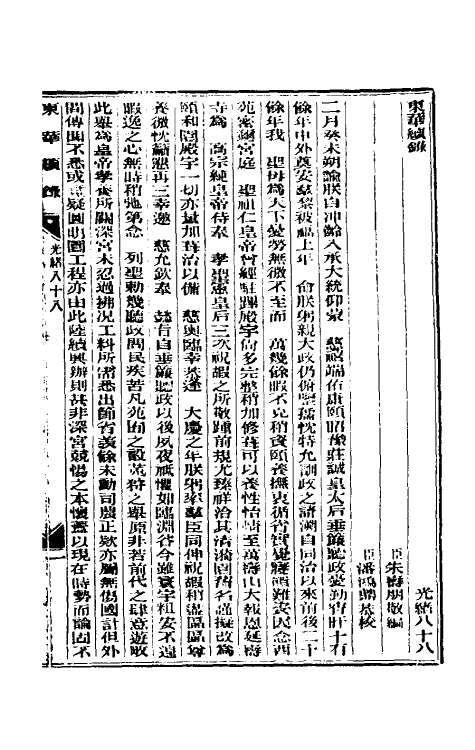 東華續錄
光緒八十八
臣朱壽朋敬編
臣潘鴻鼎恭校
二月癸未朔諭朕自沖齡入承大統仰蒙　慈禧端佑康頤昭豫莊誠皇太后垂簾聽政憂勤宵旰十有
餘年中外奠安羣黎被福上年　命朕躬親大政仍俯鑒孺忱特允訓政之請溯自同治以來前後二十
餘年我　聖母爲天下憂勞無微不至而　萬幾餘暇不克稍資頤養撫衷循省實覺寢饋難安因念西
苑密邇宮庭　聖祖仁皇帝曾經駐蹕殿宇尚多完整稍加修葺可以養性怡情至萬壽山大報恩延壽
寺爲　高宗純皇帝侍奉　孝聖憲皇后三次祝嘏之所敬踵前規尤臻祥洽其清漪園舊名謹擬改爲
頤和園殿宇一切亦量加葺治以備　慈輿臨幸恭逢　大慶之年朕躬率羣臣同伸祝嘏稍盡區區尊
養微忱籲懇再三幸邀　慈允欽奉　懿旨自垂簾聽政以後夙夜祗懼如臨淵谷今雖寰宇粗安不遑
暇逸之心無時稍弛第念　列聖勅幾聽政問民疾苦凡苑囿之設蒐狩之舉原非若前代之肆意遊畋
此舉爲皇帝孝養所關深宮未忍過拂況工料所需悉出節省羨餘未動司農正款亦屬無傷國計但外
間傳聞不悉或竟疑圓明園工程亦由此陸續興辦則甚非深宮兢惕之本懷蓋以現在時勢而論固不
東華續錄
光緒八十八